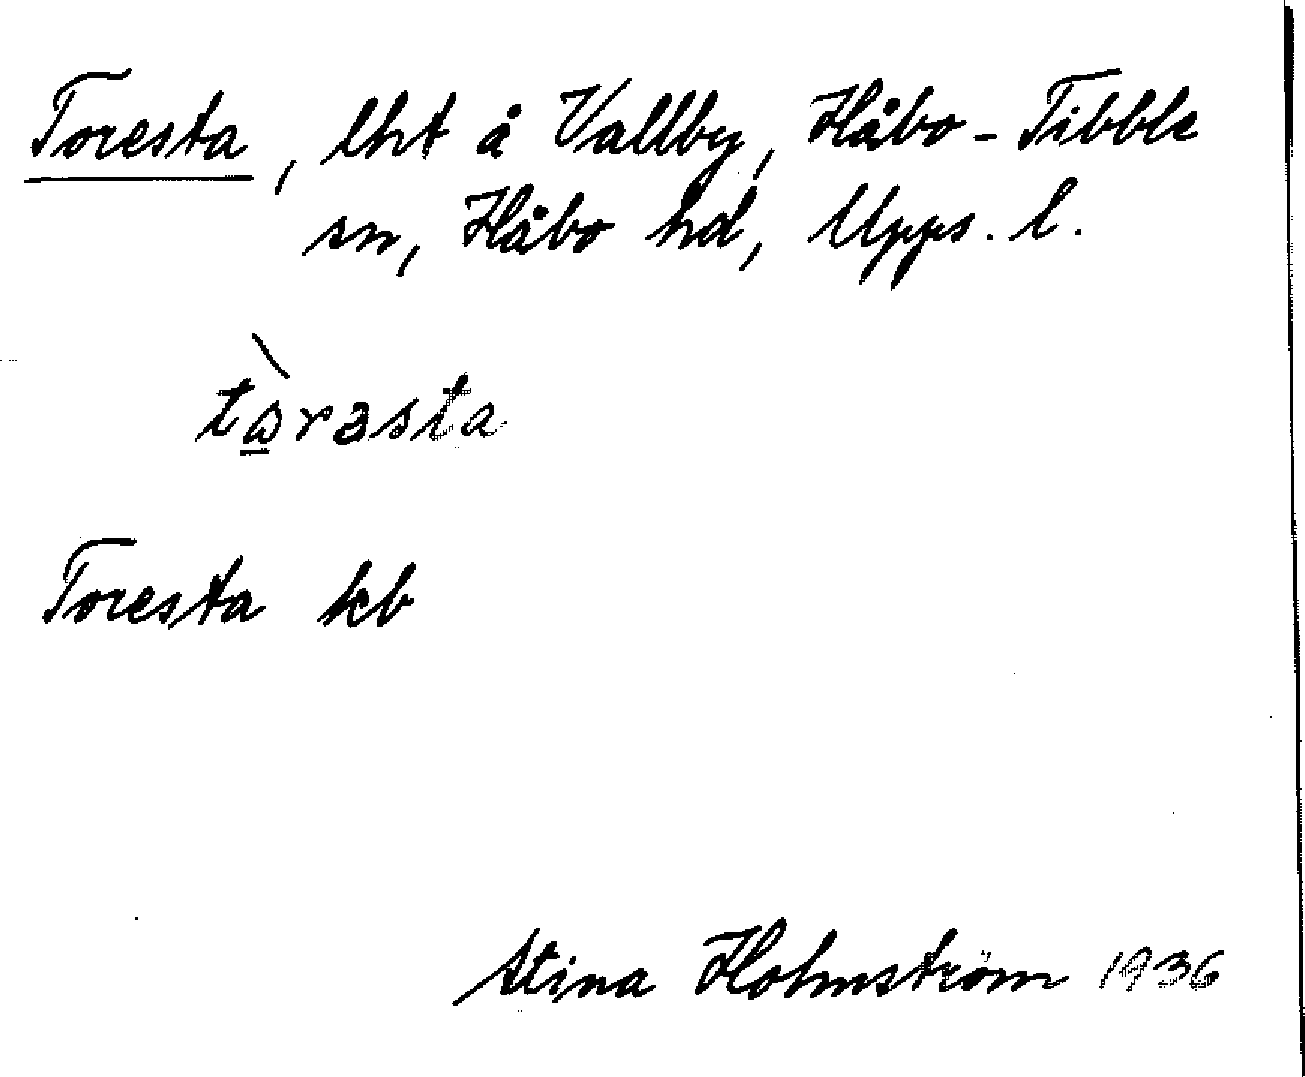 Toresta, lht å Vallby, Håbo-Tibble
sn, Håbo hd, Upps. l.
tɷ̠̀rasta
Toresta kb
Stina Holmström 1936